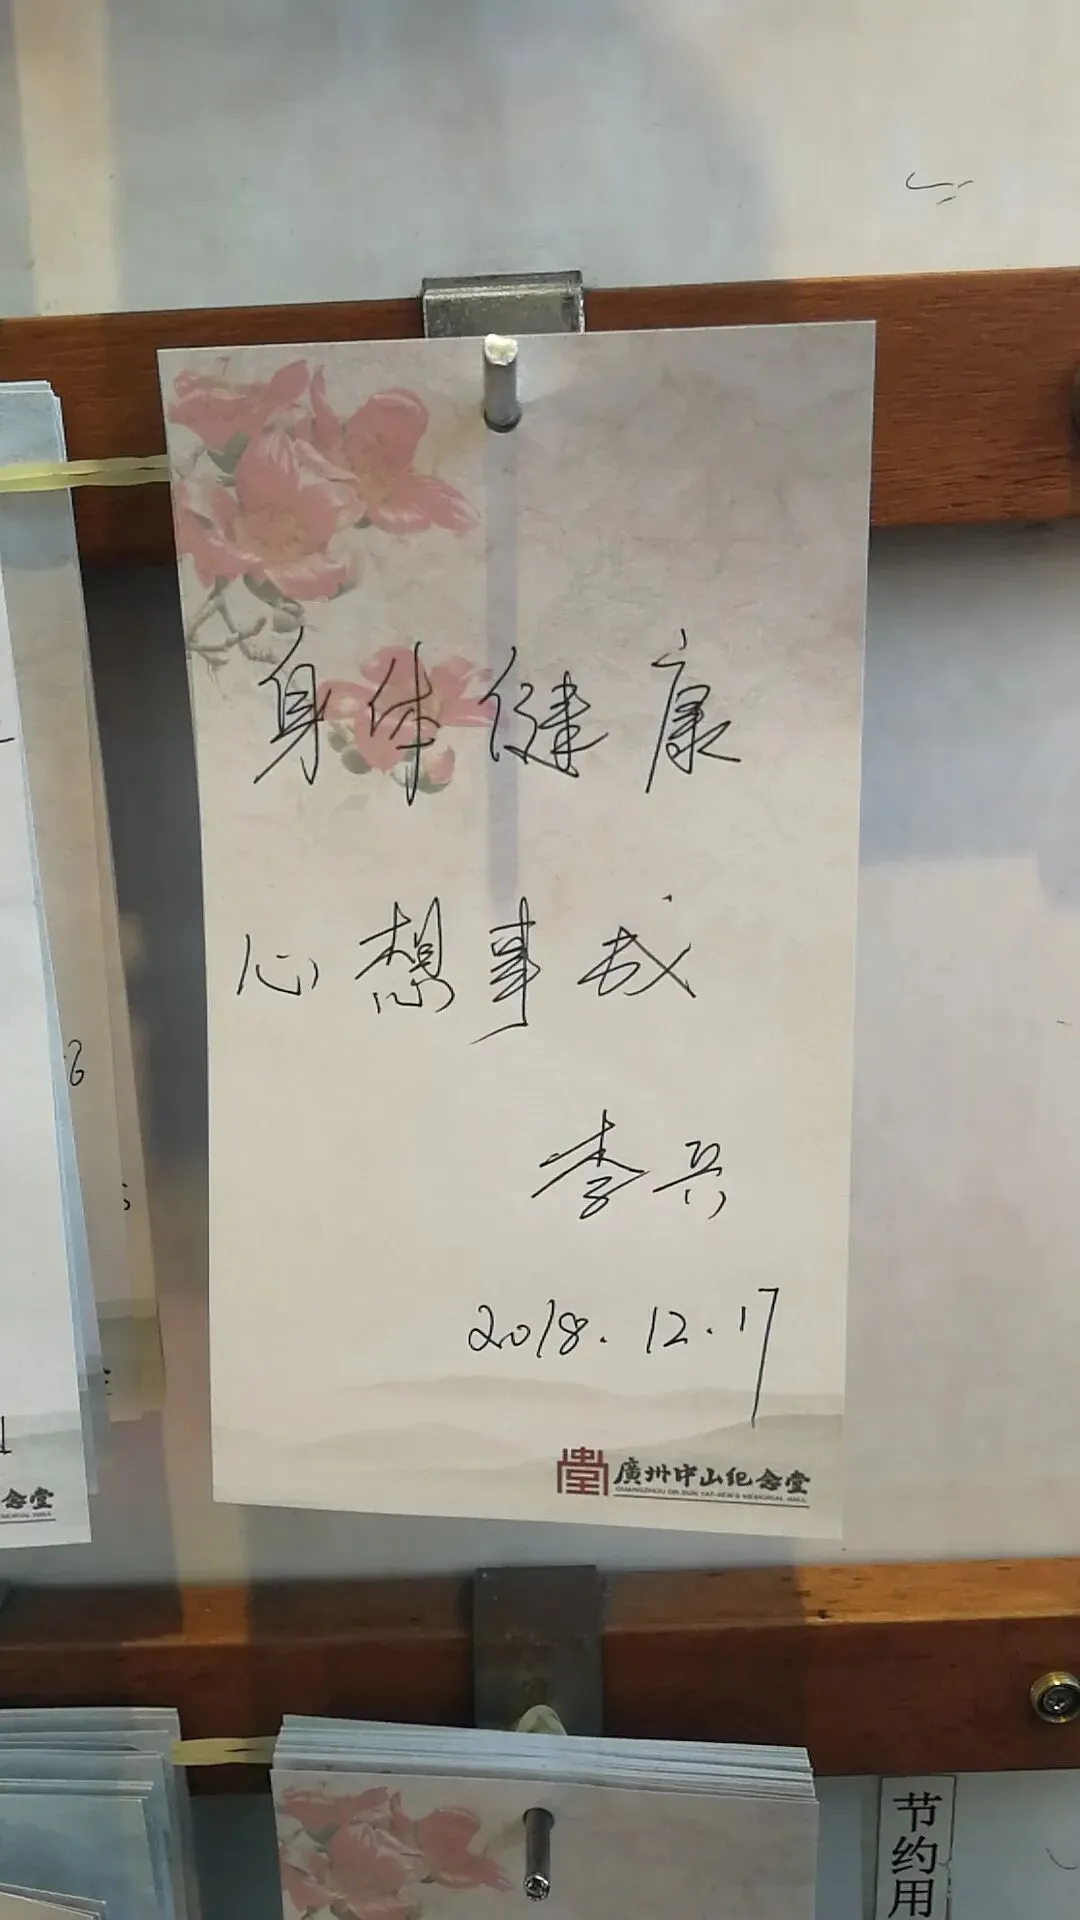 身体健康
心想事成
李兵
2018.12.17
廣州中山纪念堂
GUANGZHOU DR.SUN YAT-SEN'S MEMORIAL HALL
念堂
节约用